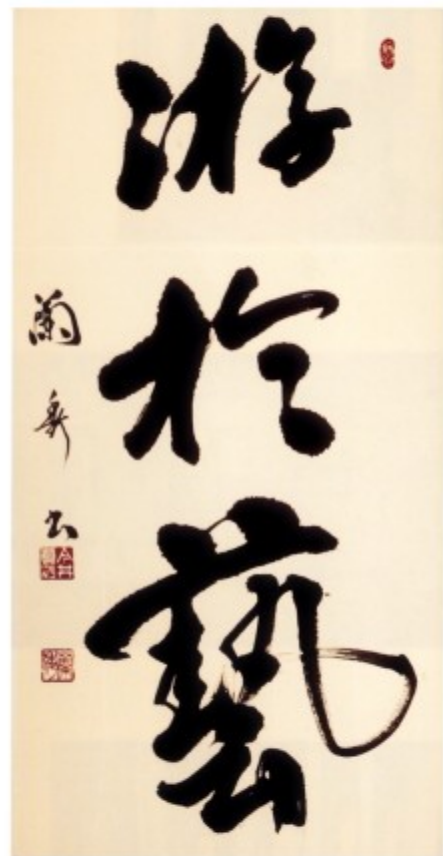 游於藝
蘭書